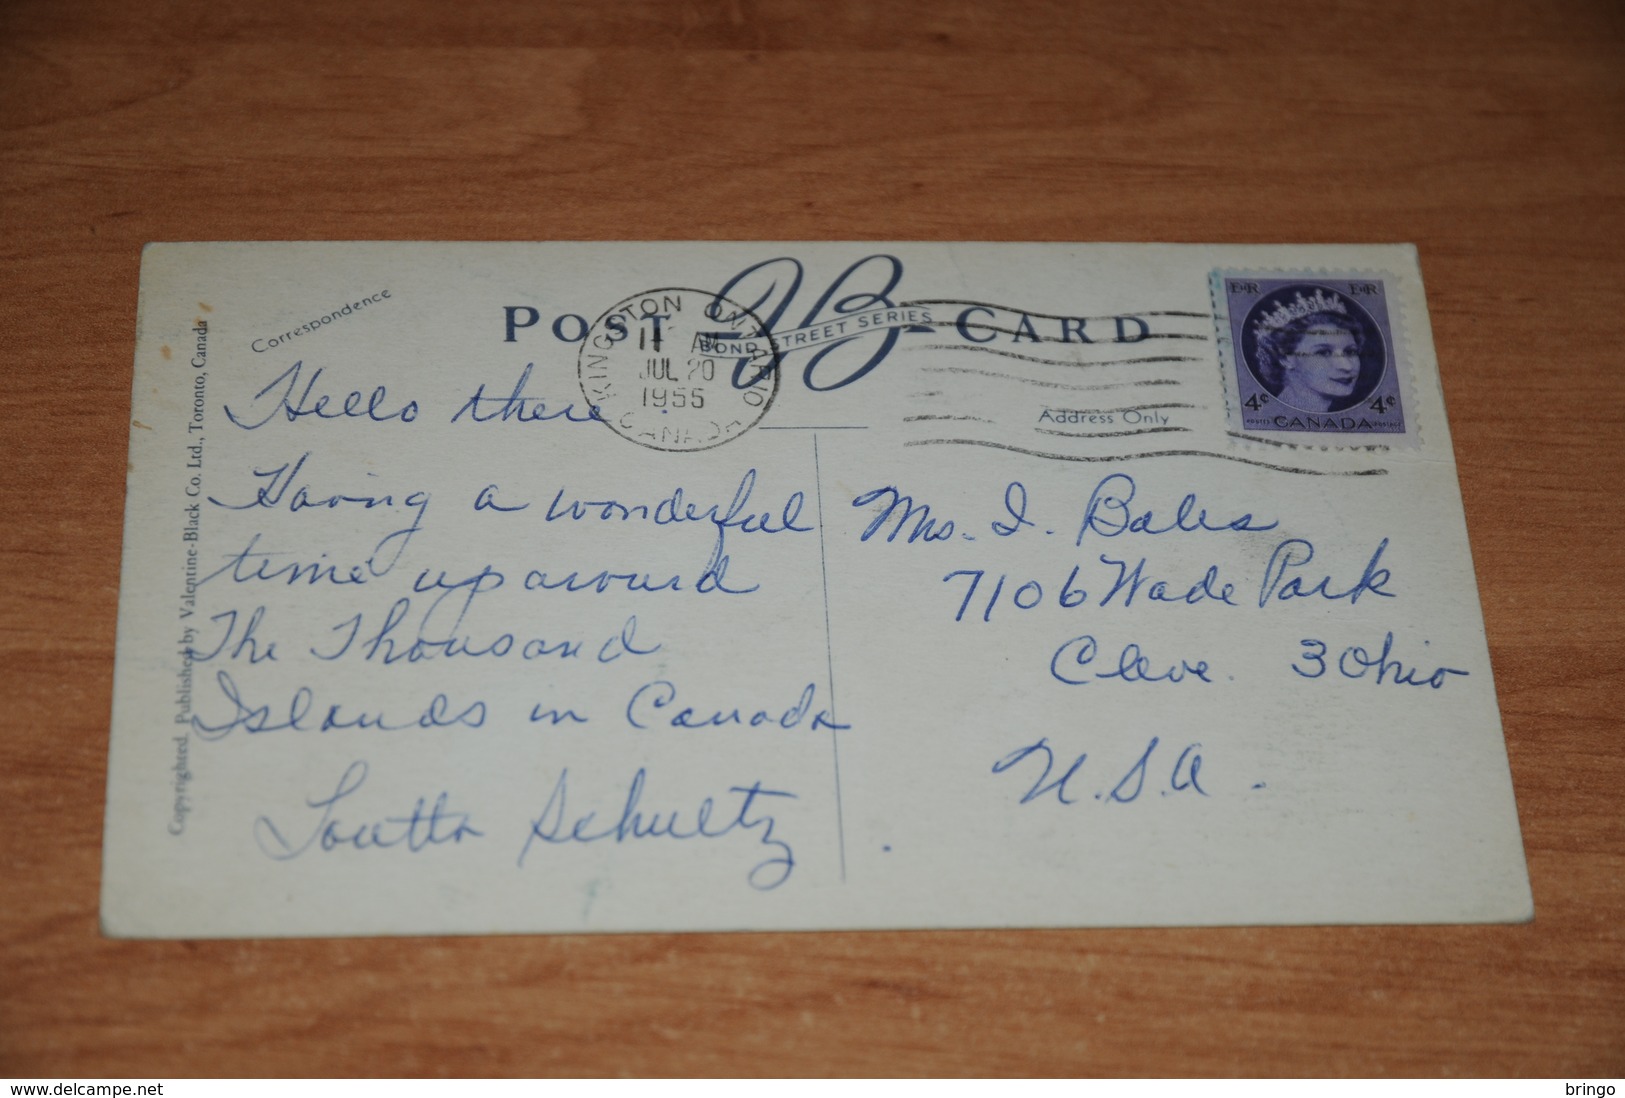 Correspondence
POST CARD
VB
BOND STREET SERIES
KINGSTON ONTARIO
11 AM
JUL 20
1955
CANADA
E R E R
4¢ CANADA 4¢
Address Only
Hello there
Having a wonderful
time up around
The Thousand
Islands in Canada
Schultz
Mrs. I. Bales
7106 Wade Park
Cleve. 3 Ohio
U.S.A.
Copyrighted. Published by Valentine-Black Co. Ltd., Toronto, Canada
www.delcampe.net
bringo